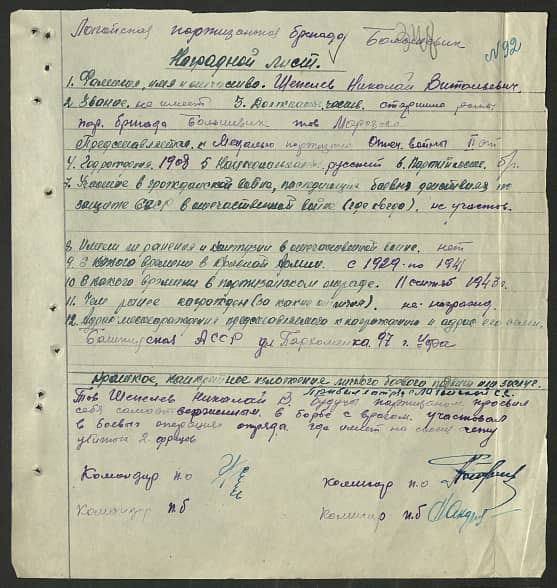 Логойская партизанская бригада Большевик
№92
Наградной лист.
1. Фамилия, имя и отчество. Шепелев Николай Витальевич.
2. Звание, не имеет 3. Должность, часть. старшина роты
пар. бригада Большевик тов
Представляется к Медалью партизану Отеч. войны II ст
4. Год рождения. 1908 5 Национальность русский 6. Партийность. б/п.
7. Участие в гражданской войне, последующих боевых действиях по
защите СССР в отечественной войне (где когда). не участв.
8. Имеет ли ранения и контузии в отечественной войне. нет
9. С какого времени в Красной Армии. с 1929 по 1941
10 С какого времени в партизанском отряде. 11 сентяб 1943 г.
11. Чем ранее награжден (за какие отличия). не награжд.
12. Адрес представляемого к награждению и адрес его семьи.
Башкирская АССР ул Пархоменка 97 г. Уфа
Краткое, конкретное изложение личного боевого подвига или заслуг.
Тов Шепелев Николай В. будучи партизаном проявил
себя самоотверженным. в борьбе с врагом. участвовал
в боевых операциях отряда. где имеет на своем счету
убитых 2 фрицов
Командир п.о комиссар п.о
Командир п.б комиссар п.б